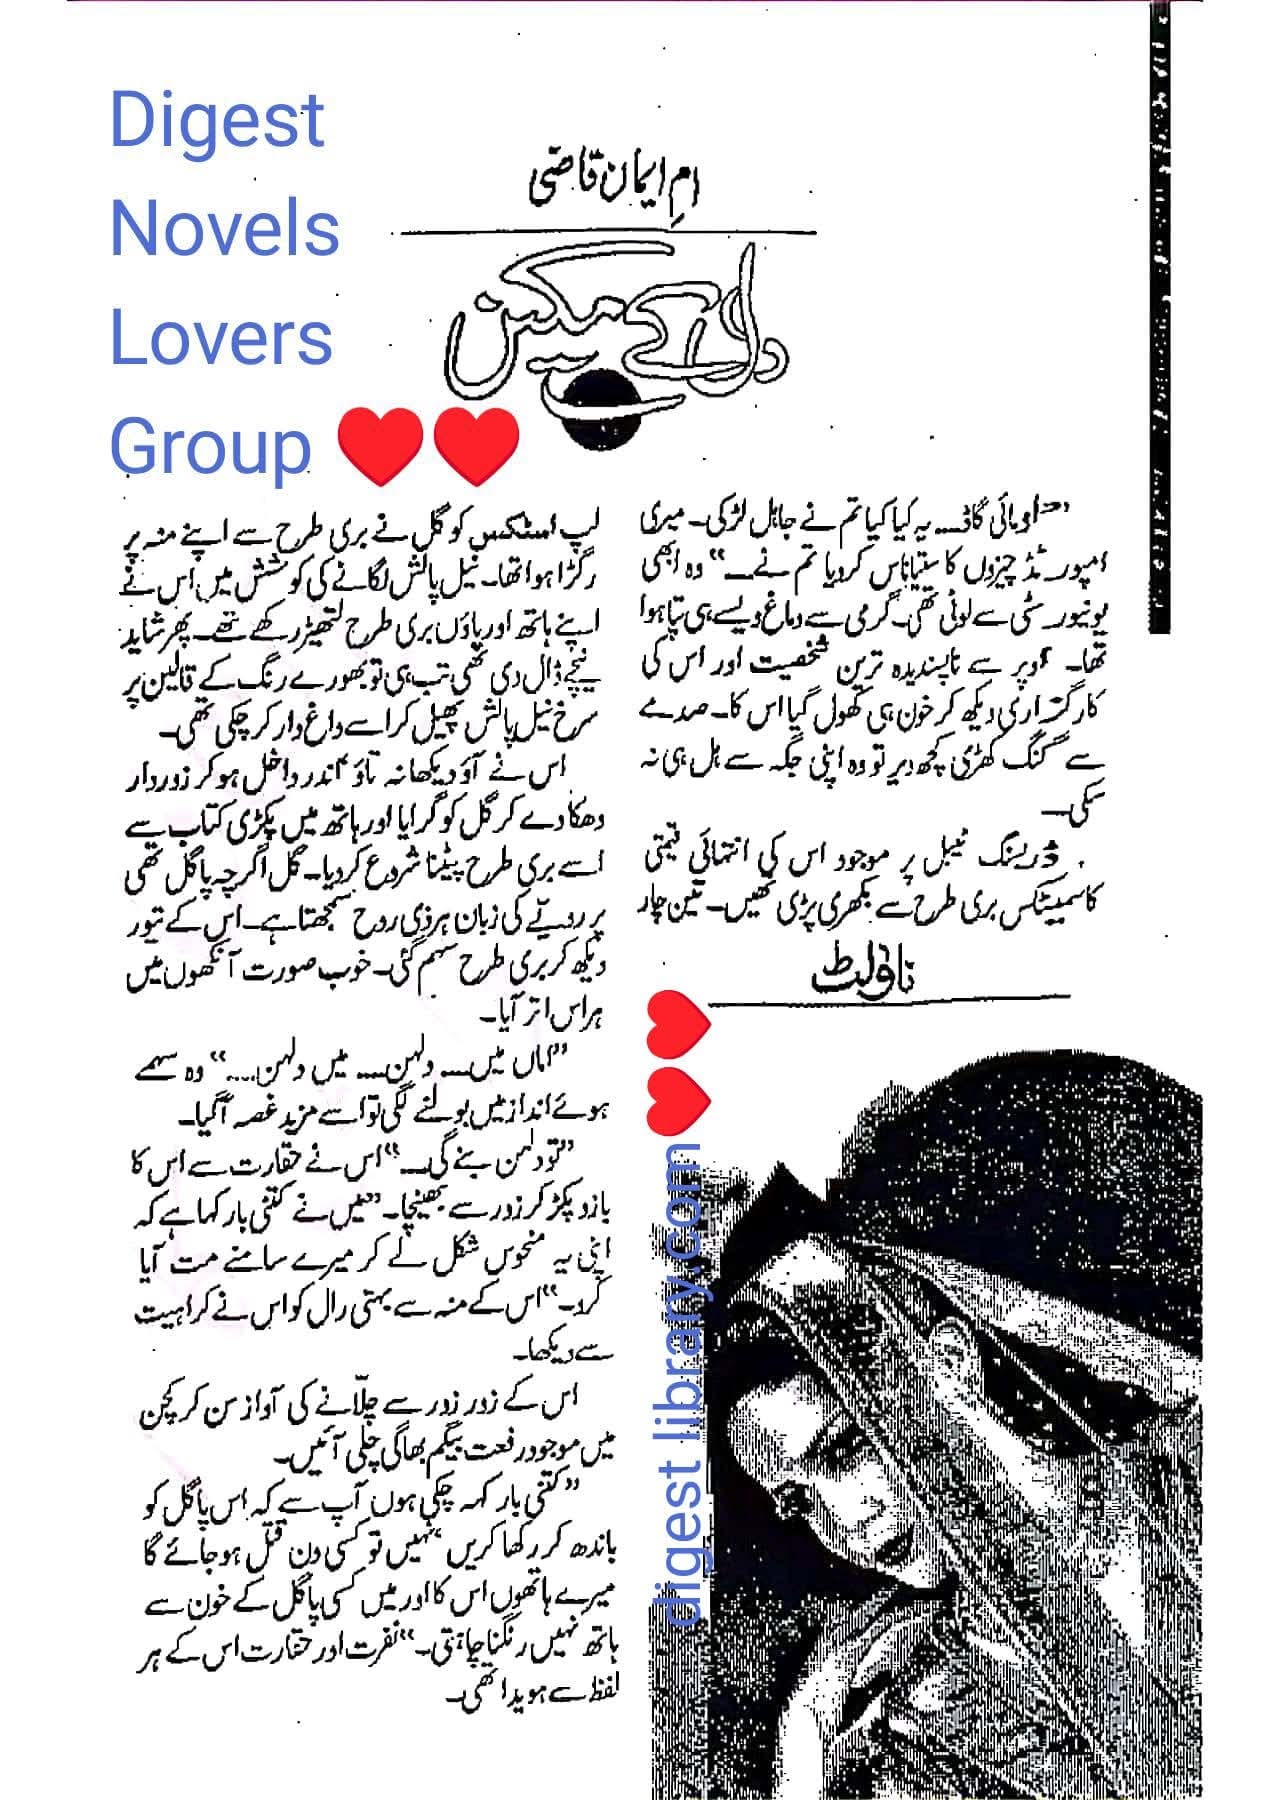 Digest
Novels
Lovers
Group
امِ ایمان قاضی
دل کے مکین
"اومائی گاڈ۔۔۔ یہ کیا کیا تم نے جاہل لڑکی۔ میری
امپورٹڈ چیزوں کا ستیاناس کردیا تم نے۔۔۔" وہ ابھی
یونیورسٹی سے لوٹی تھی۔ گرمی سے دماغ ویسے ہی تپا ہوا
تھا۔ اوپر سے ناپسندیدہ ترین شخصیت اور اس کی
کارگزاری دیکھ کر خون ہی کھول گیا اس کا۔ صدمے
سے گنگ کھڑی کچھ دیر تو وہ اپنی جگہ سے ہل ہی نہ
سکی۔
ڈریسنگ ٹیبل پر موجود اس کی انتہائی قیمتی
کاسمیٹکس بری طرح سے بکھری پڑی تھیں۔ تین چار
ناولٹ
لپ اسٹکس کو گل نے بری طرح سے اپنے منہ پر
رگڑا ہوا تھا۔ نیل پالش لگانے کی کوشش میں اس نے
اپنے ہاتھ اور پاؤں بری طرح لتھیڑ رکھے تھے۔ پھر شاید
نیچے ڈال دی تھی تب ہی تو بھورے رنگ کے قالین پر
سرخ نیل پالش پھیل کر اسے داغ دار کر چکی تھی۔
اس نے آؤ دیکھا نہ تاؤ اندر داخل ہو کر زوردار
دھکا دے کر گل کو گرایا اور ہاتھ میں پکڑی کتاب سے
اسے بری طرح پیٹنا شروع کردیا۔ گل اگرچہ پاگل تھی
پر رویے کی زبان ہر ذی روح سمجھتا ہے۔ اس کے تیور
دیکھ کر بری طرح سہم گئی۔ خوب صورت آنکھوں میں
ہراس اتر آیا۔
"اماں میں۔۔۔ دلہن۔۔۔ میں دلہن۔۔۔۔" وہ سہمے
ہوئے انداز میں بولنے لگی تو اسے مزید غصہ آگیا۔
"تو دلہن بنے گی۔۔۔" اس نے حقارت سے اس کا
بازو پکڑ کر زور سے بھینچا۔ "میں نے کتنی بار کہا ہے کہ
اپنی یہ منحوس شکل لے کر میرے سامنے مت آیا
کرو۔" اس کے منہ سے بہتی رال کو اس نے کراہیت
سے دیکھا۔
اس کے زور زور سے چلّانے کی آواز سن کر کچن
میں موجود رفعت بیگم بھاگی چلی آئیں۔
"کتنی بار کہہ چکی ہوں آپ سے کہ اس پاگل کو
باندھ کر رکھا کریں، نہیں تو کسی دن قتل ہو جائے گا
میرے ہاتھوں اس کا اور میں کسی پاگل کے خون سے
ہاتھ نہیں رنگنا چاہتی۔" نفرت اور حقارت اس کے ہر
لفظ سے ہویدا تھی۔
digest library.com